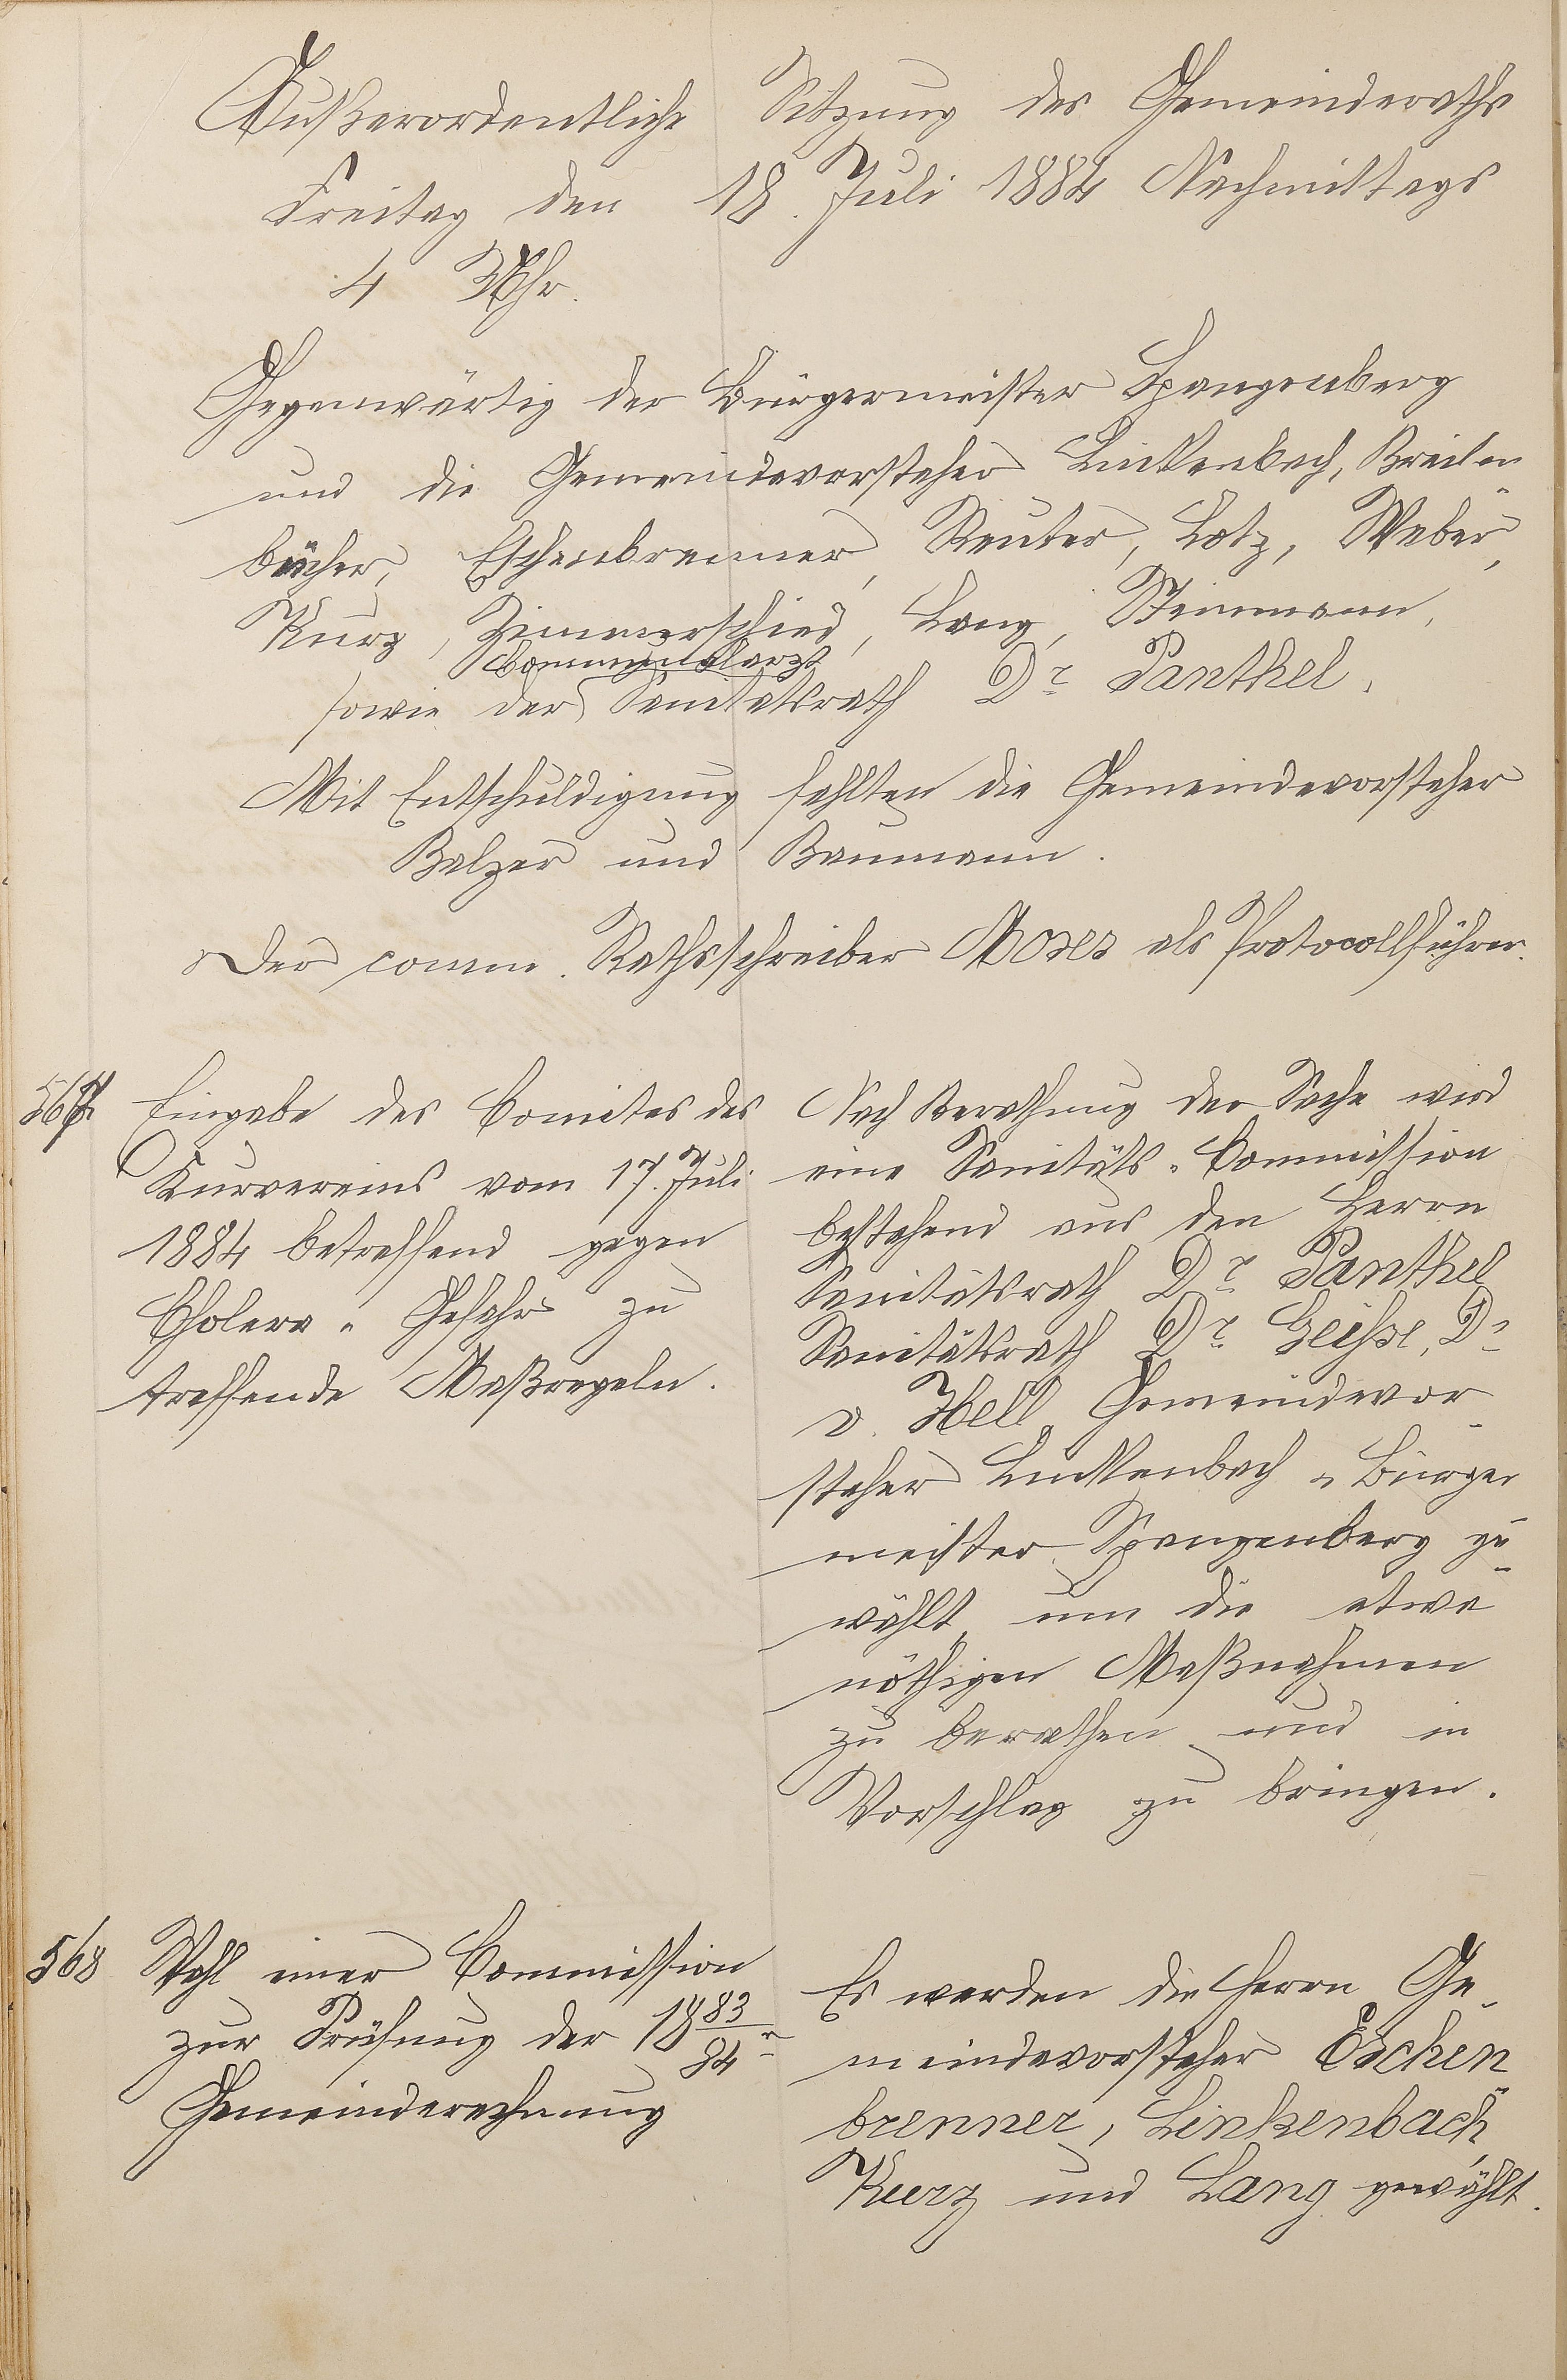 Außerordentliche Sitzung des Gemeinderaths
Freitag den 18. Juli 1884 Nachmittags
4 Uhr.
Gegenwärtig der Bürgermeister Spangenberg
und die Gemeindevorsteher Linkenbach, Breiten-
bücher, Eschenbrenner, Reuter, Lotz, Weber,
Kurz, Zimmerschied, Lang, Steinmann,
Communalarzt
sowie der Sanitätsrath Dr Panthel.
Mit Entschuldigung fehlten die Gemeindevorsteher
Balzer und Baumann.
Der comm. Rathsschreiber Moses als Protocollführer.
567
Eingabe des Comites des
Kurvereins vom 17. Juli
1884 betreffend gegen
Cholera-Gefahr zu
treffende Maßregeln.
Nach Berathung der Sache wird
eine Sanitäts-Commission
bestehend aus den Herrn
Sanitätsrath Dr Panthel
Sanitätsrath Dr Geisse, Dr
v. Hell, Gemeindevor-
steher Linkenbach u Bürger
meister Spangenberg ge-
wählt um die etwa
nöthigen Maßnahmen
zu berathen und in
Vorschlag zu bringen.
568
Wahl einer Commission
zur Prüfung der 1883/84r
Gemeinderechnung
Es werden die Herrn Ge-
meindevorsteher Eschen-
brenner, Linkenbach,
Kurz und Lang gewählt.